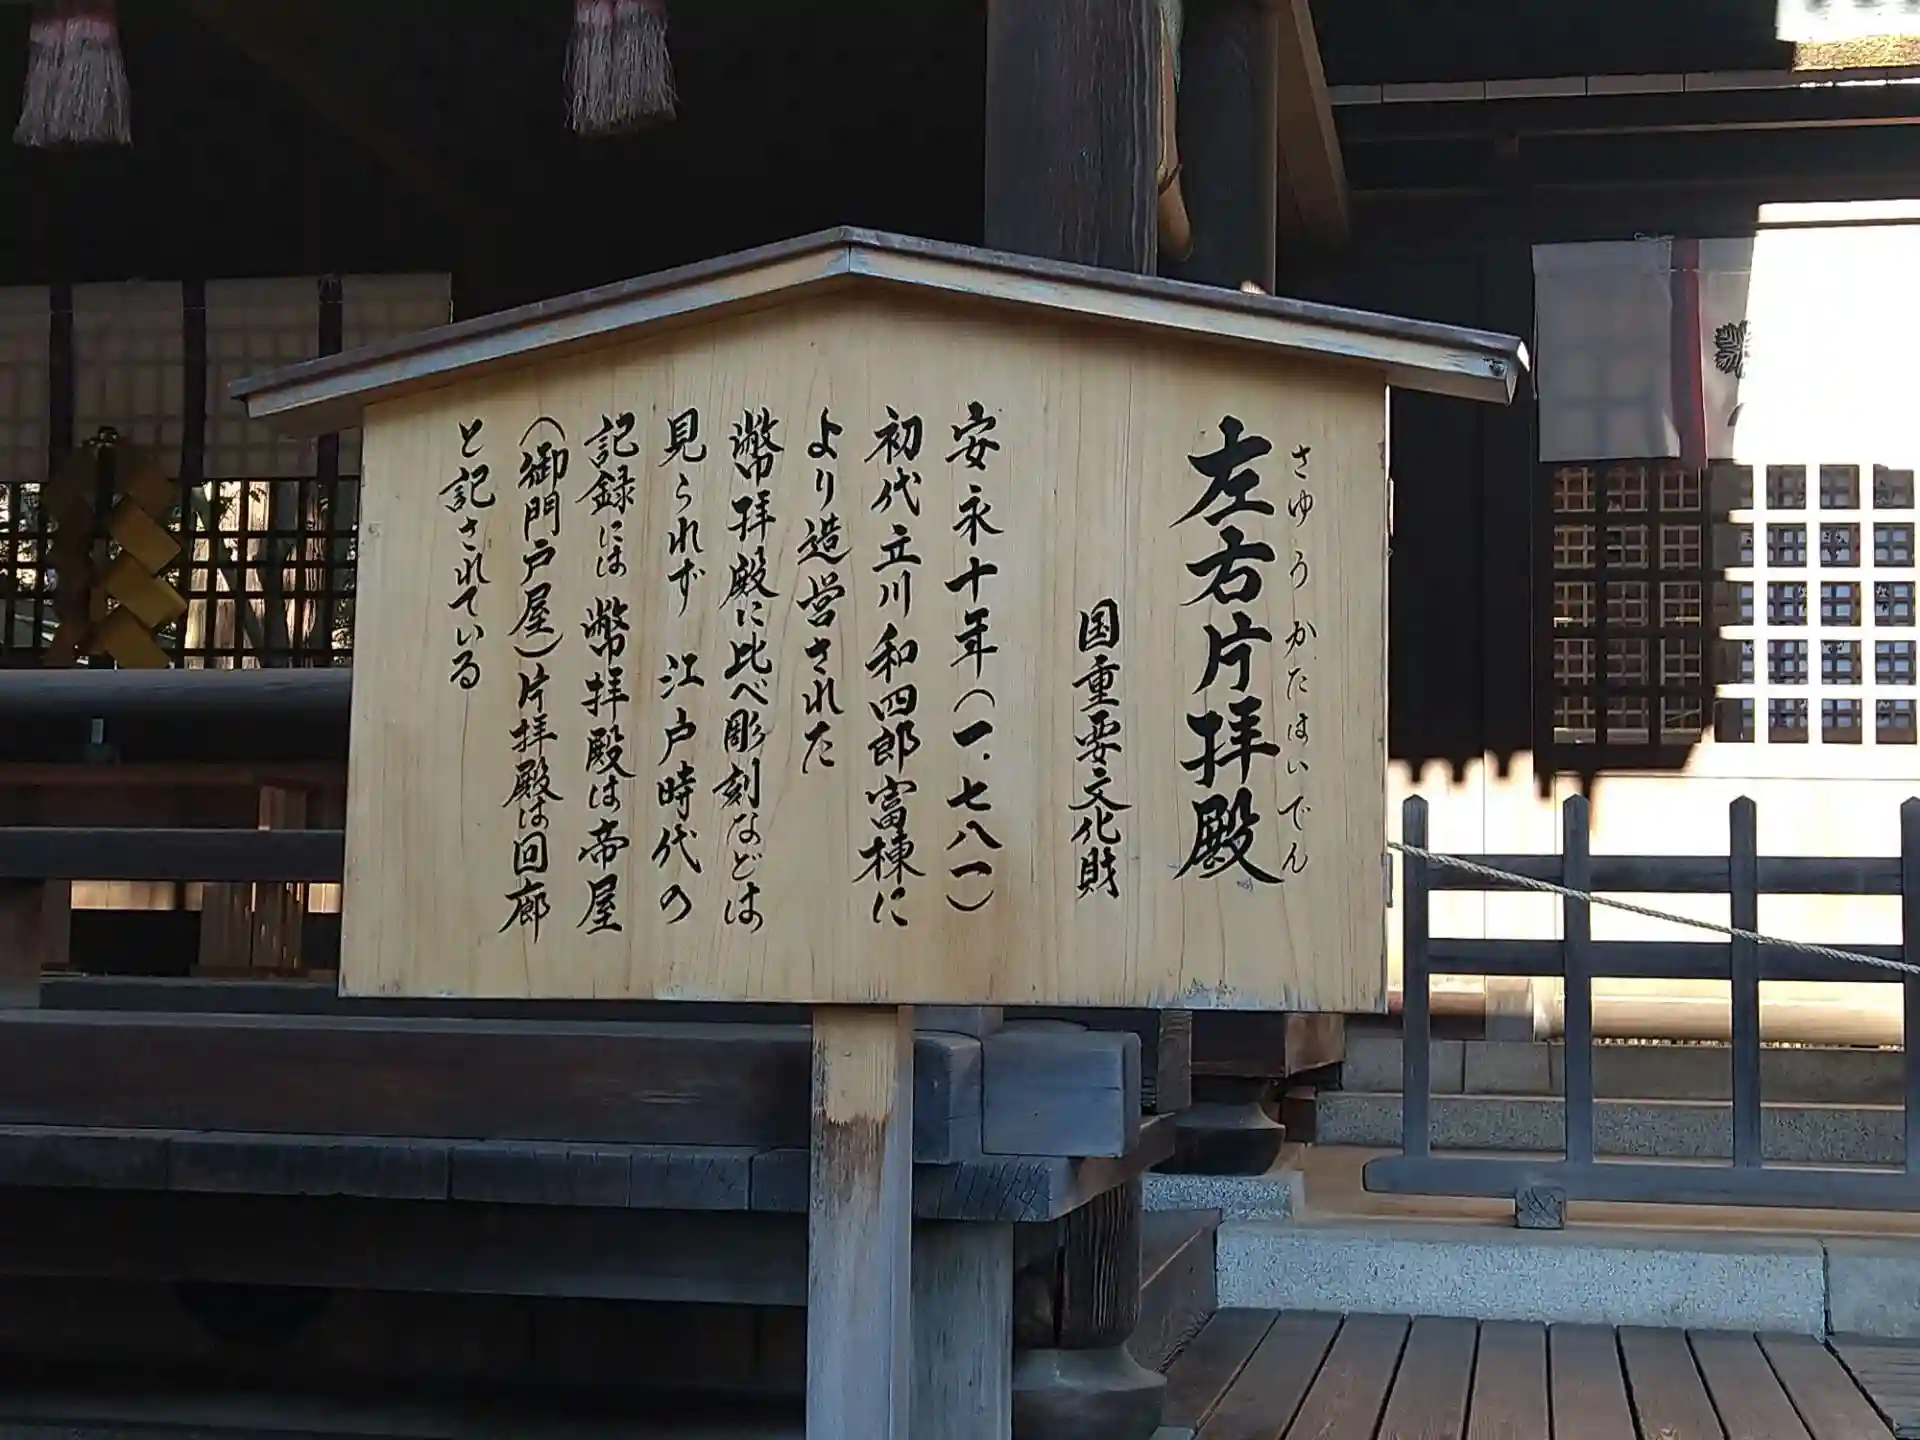 さゆうかたはいでん
左右片拝殿
国重要文化財
安永十年(一七八一)
初代立川和四郎富棟に
より造営された
幣拝殿に比べ彫刻などは
見られず 江戸時代の
記録には 幣拝殿は帝屋
(御門戸屋)片拝殿は回廊
と記されている